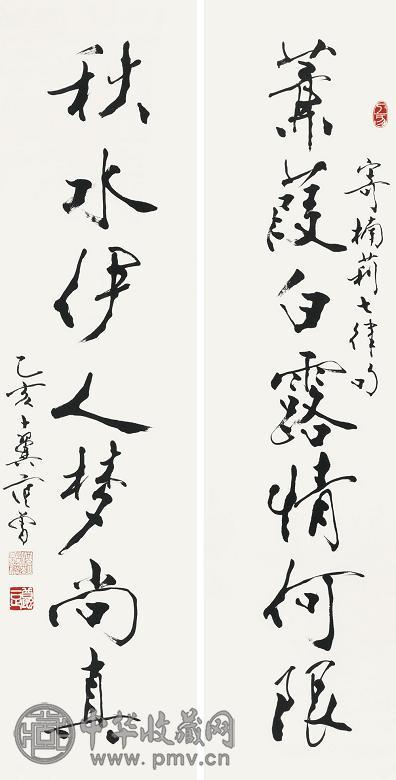 蒹葭白露情何限
寄楠莉七律句
秋水伊人梦尚真
乙亥十翼范曾
中华收藏网
www.pmv.cn